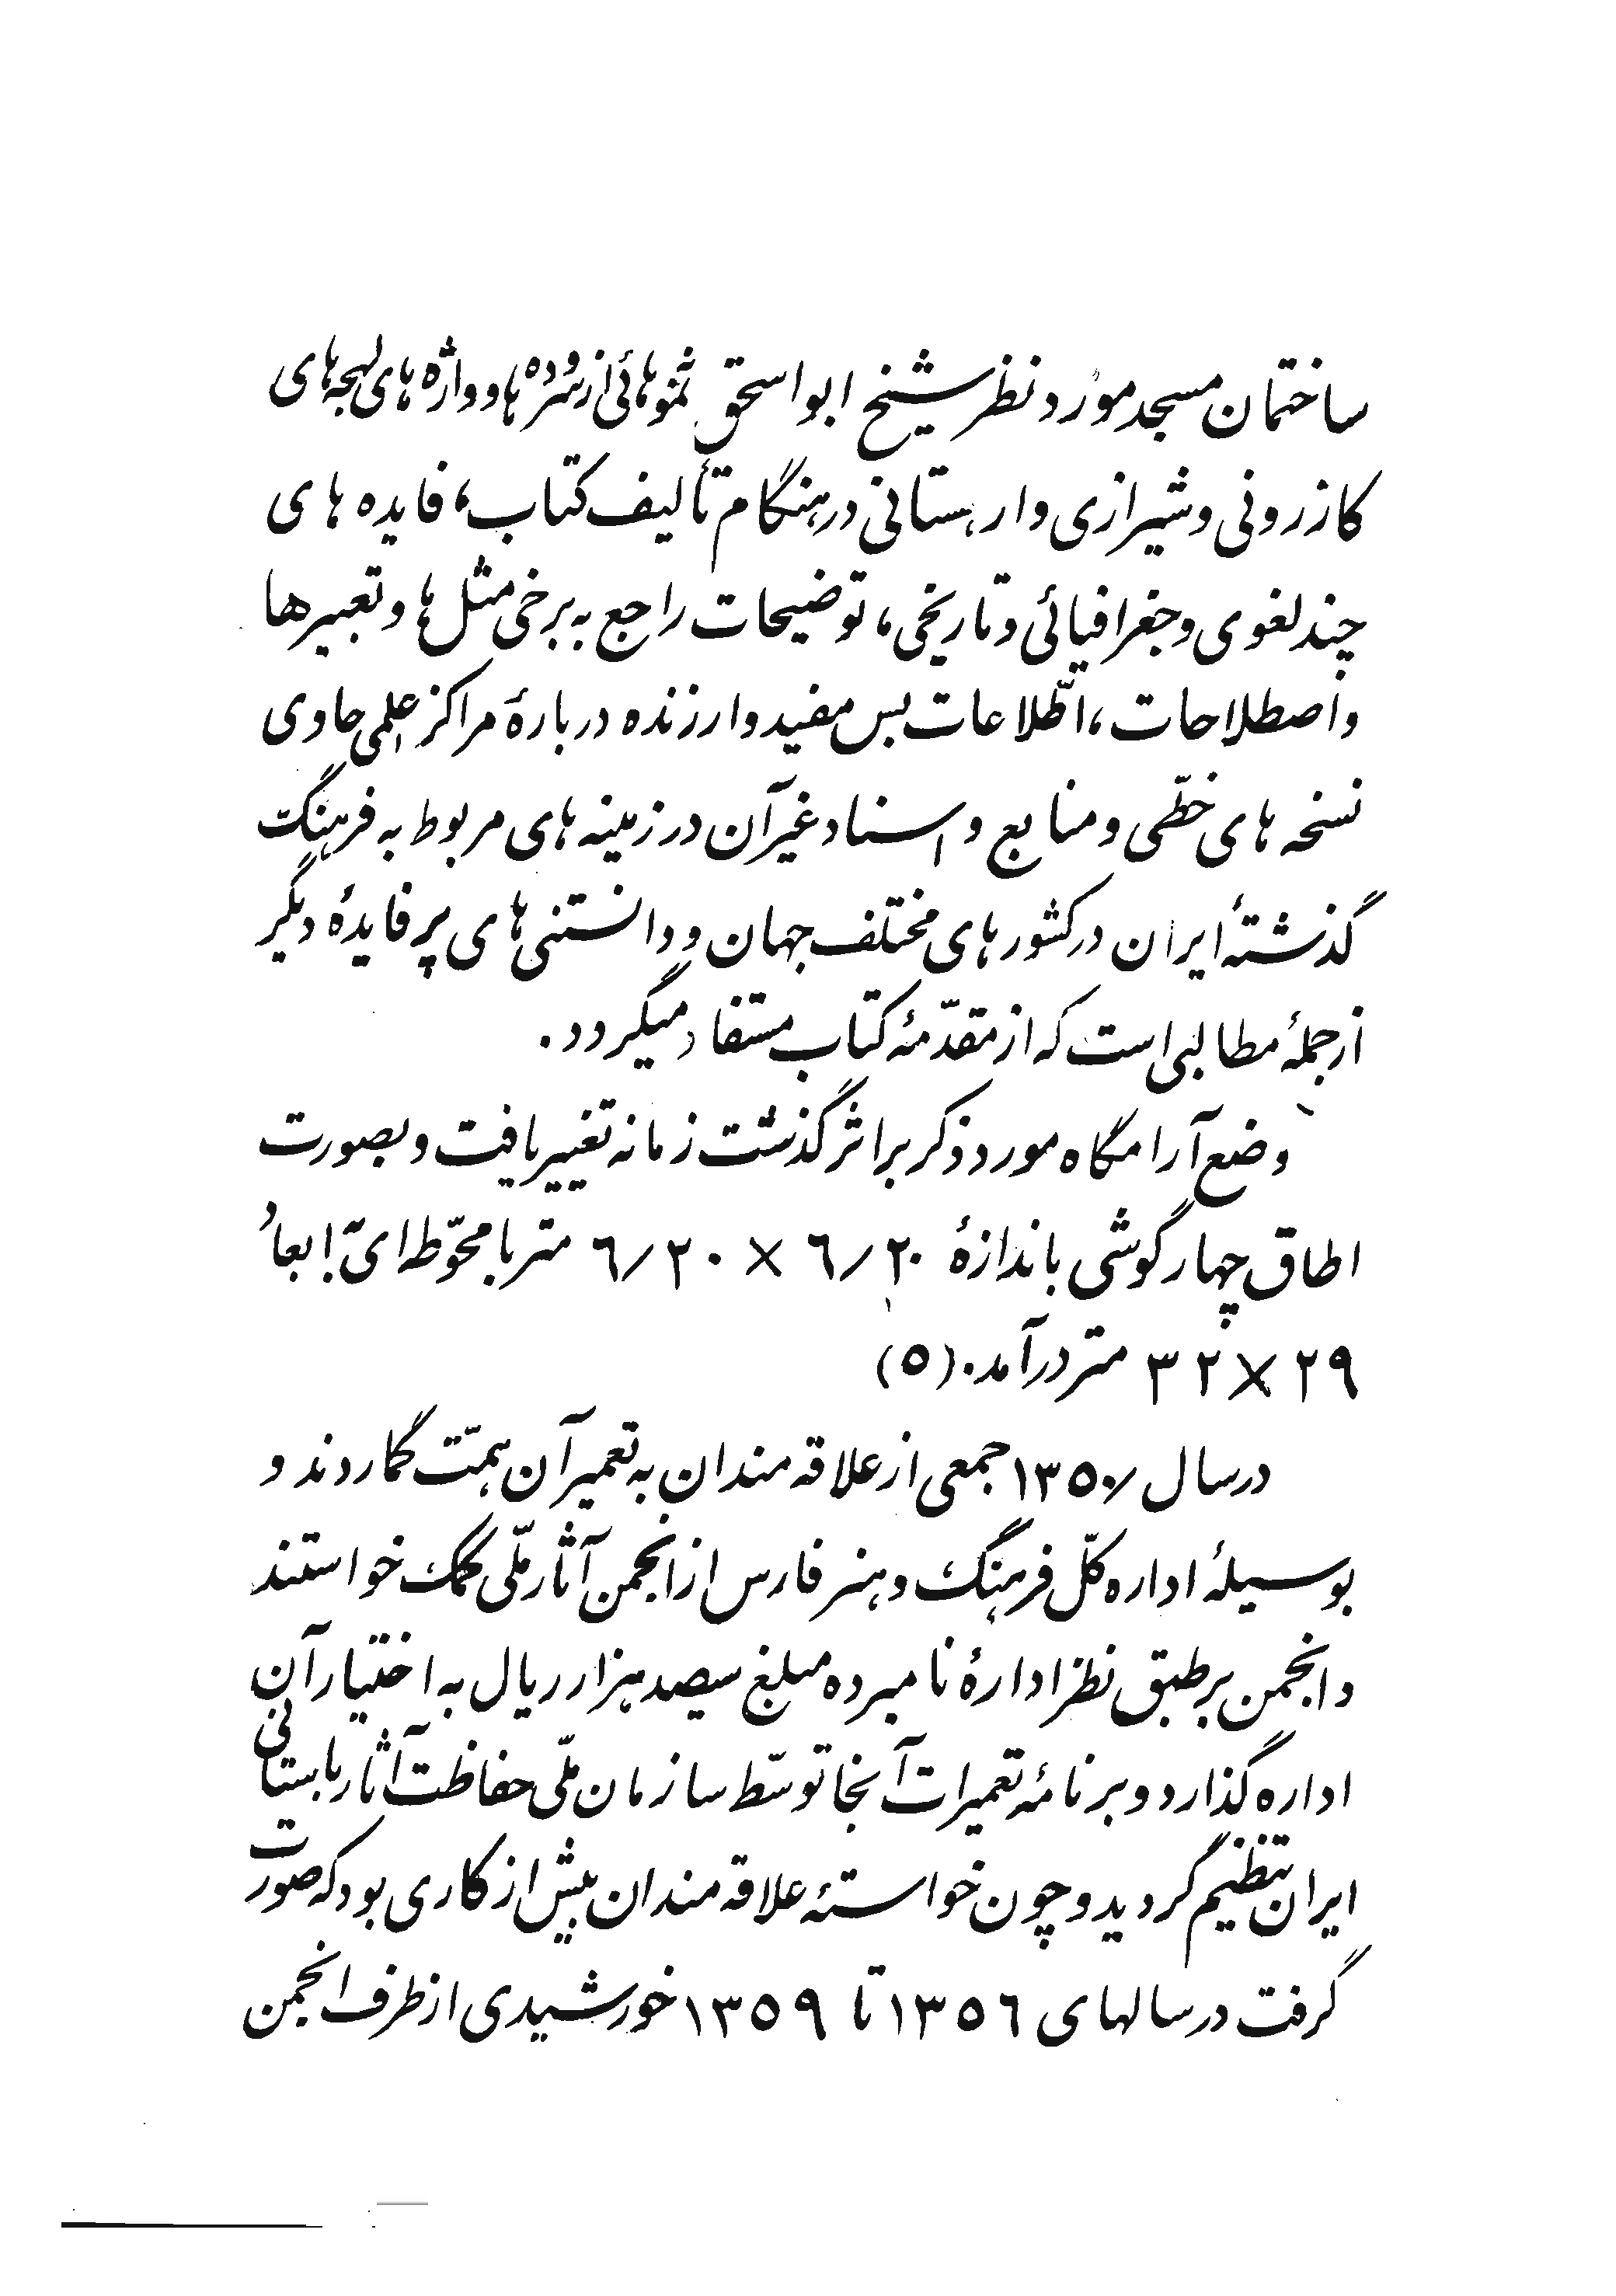 ساختمان مسجد مورد نظر شیخ ابواسحق نمونه‌هائی از سروده‌ها و واژه‌های لهجه‌های
کازرونی و شیرازی و اردستانی در هنگام تألیف کتاب، فایده‌های
چند لغوی و جغرافیائی و تاریخی، توضیحات راجع به برخی مثل‌ها و تعبیرها
و اصطلاحات، اطّلاعات بس مفید و ارزنده دربارهٔ مراکز علمی حاوی
نسخه‌های خطّی و منابع و اسناد غیر آن در زمینه‌های مربوط به فرهنگ
گذشتهٔ ایران در کشورهای مختلف جهان و دانستنی‌های پر فایدهٔ دیگر
از جملهٔ مطالبی است که از مقدّمهٔ کتاب مستفاد میگردد.
وضع آرامگاه مورد ذکر بر اثر گذشت زمانه تغییر یافت و بصورت
اطاق چهارگوشی باندازهٔ ۶/۲۰ × ۶/۲۰ متر با محوّطه‌ای بابعاد
۲۹×۳۲ متر درآمد. (۵)
در سال ۱۳۵۰/ جمعی از علاقه‌مندان به تعمیر آن همّت گماردند و
بوسیلهٔ اداره کلّ فرهنگ و هنر فارس از انجمن آثار ملّی کمک خواستند
و انجمن بر طبق نظر ادارهٔ نامبرده مبلغ سیصد هزار ریال به اختیار آن
اداره گذارد و برنامهٔ تعمیرات آنجا توسّط سازمان ملّی حفاظت آثار باستانی
ایران تنظیم گردید و چون خواستهٔ علاقه‌مندان بیش از کاری بود که صورت
گرفت در سالهای ۱۳۵۶ تا ۱۳۵۹ خورشیدی از طرف انجمن